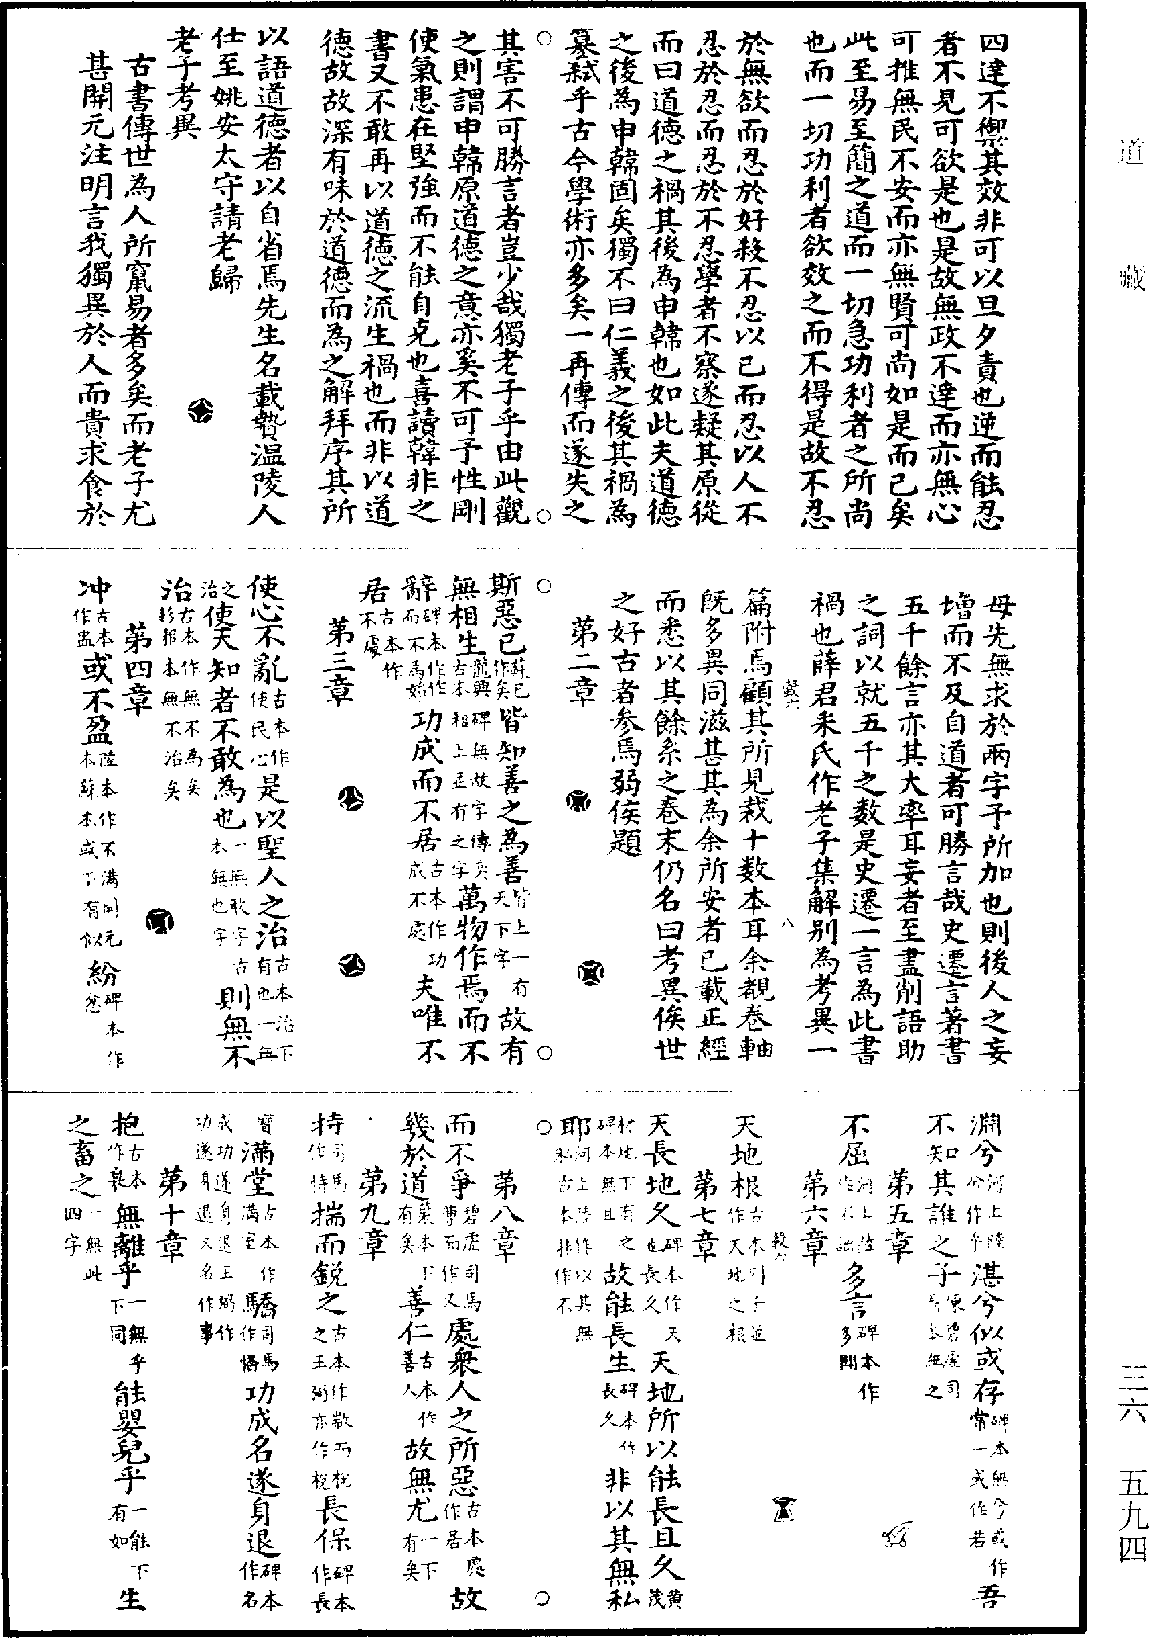 道藏
四達不禦其效非可以旦夕責也逆而能忍
者不見可欲是也是故無政不達而亦無心
可推無民不安而亦無賢可尚如是而已矣
此至易至簡之道而一切急功利者之所尚
也而一切功利者欲效之而不得是故不忍
於無欲而忍於好殺不忍以己而忍以人不
忍於忍而忍於不忍學者不察遂疑其原從
而曰道德之禍其後為申韓也如此夫道德
之後為申韓固矣獨不曰仁義之後其禍為
篡弒乎古今學術亦多矣一再傳而遂失之
其害不可勝言者豈少哉獨老子乎由此觀
之則謂申韓原道德之意亦奚不可予性剛
使氣患在堅強而不能自克也喜讀韓非之
書又不敢再以道德之流生禍也而非以道
德故故深有味於道德而為之解拜序其所
以語道德者以自省焉先生名載贄温陵人
仕至姚安太守請老歸
老子考異
古書傳世為人所竄易者多矣而老子尤
甚開元注明言我獨異於人而貴求食於
母先無求於兩字予所加也則後人之妄
增而不及自道者可勝言哉史遷言著書
五千餘言亦其大率耳妄者至盡削語助
之詞以就五千之數是史遷一言為此書
禍也薛君采氏作老子集解別為考異一
篇附焉顧其所見裁十數本耳余覩卷軸
既多異同滋甚其為余所安者已載正經
而悉以其餘系之卷末仍名曰考異俟世
之好古者參焉弱侯題
第二章
斯惡已蘇已作矣皆知善之為善皆上一有天下字故有
無相生龍興碑無故字傅奕古本相上並有之字萬物作焉而不
辭碑本作作而不為始功成而不居古本作功成不處夫唯不
居古本作不處
第三章
使心不亂古本作使民心是以聖人之治古本治下有也一無
之治使夫知者不敢為也一無敢字古本無也字則無不
治古本作無不為矣彭耜本無不治矣
第四章
冲古本作盅或不盈陸本作不滿開元本蘇本或下有似紛碑本作忿
淵兮河上陸兮作乎湛兮似或存碑本無兮或作常一或作若吾
不知其誰之子陳碧虛司馬並無之
第五章
不屈河上陸作不詘多言碑本作多聞
第六章
天地根古本列子並作天地之根
第七章
天長地久碑本作天地長久天地所以能長且久黄茂
材地下有之碑本無且故能長生碑本作長久非以其無私
耶河上陸作以其無私古本非作不
第八章
而不爭碧虛司馬專而作又處衆人之所惡古本處作居故
幾於道葉本下有矣善仁古本作善人故無尤一下有矣
第九章
持司馬作恃揣而銳之古本作㪜而梲之王弼亦作梲長保碑本作長
寶滿堂古本作滿室驕司馬作憍功成名遂身退碑本作名
成功遂身退王弼作功遂身退又名作事
第十章
抱古本作裒無離乎一無乎下同能嬰兒乎一能下有如生
之畜之一無此四字
三六 五九四